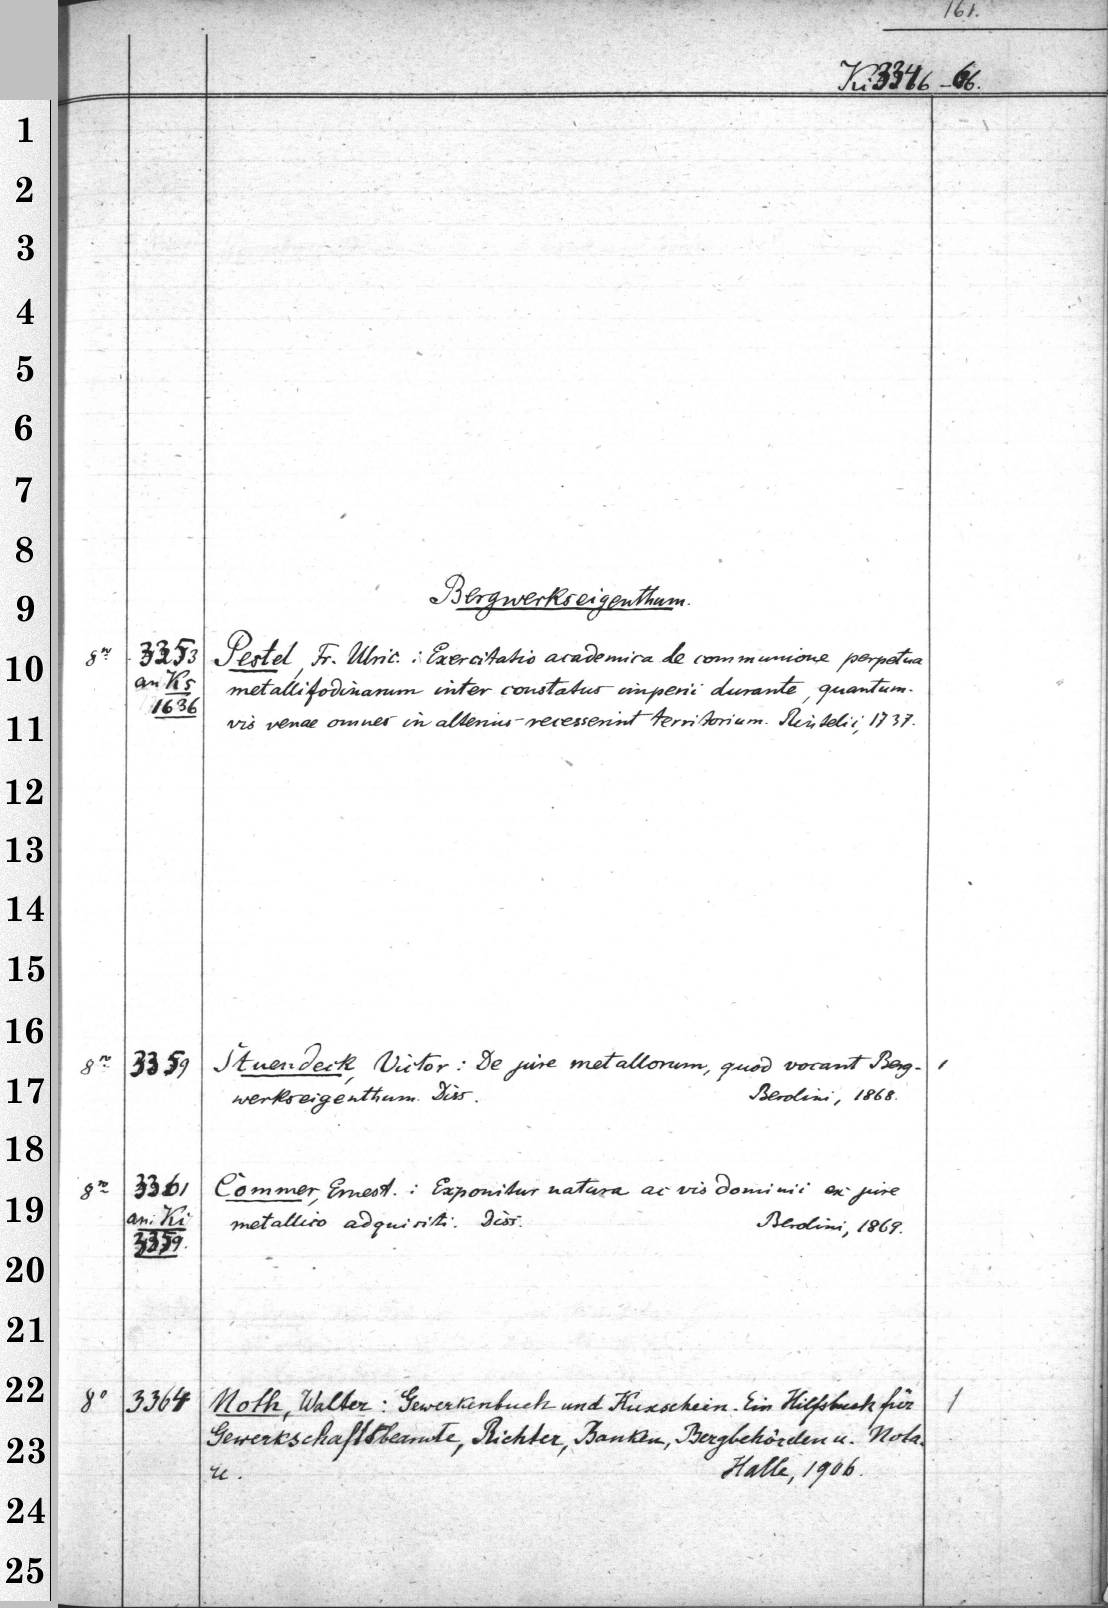 161.
Ki 3346-66.
1
2
3
4
5
6
7
8
9
Bergwerkseigenthum.
10
8º 3353 Pestel, Fr. Ulric. : Exercitatio academica de communione perpetua
an Ks metallifodinarum inter constatus imperii durante, quantum-
1636
11
vis venae omnes in alterius recesserint territorium. Rintelii, 1737.
12
13
14
15
16
8º 3359 Stuendeck, Victor : De jure metallorum, quod vocant Berg- 1
17
werkseigenthum. Diss. Berolini, 1868.
18
8º 3361 Commer, Ernest. : Exponitur natura ac vis dominii ex jure
19
an: Ki metallico adquisiti. Diss. Berolini, 1869.
3359.
20
21
22
8º 3364 Noth, Walter : Gewerkenbuch und Kuxschein. Ein Hilfsbuch für 1
Gewerkschaftsbeamte, Richter, Banken, Bergbehörden u. Nota-
23
re. Halle, 1906.
24
25